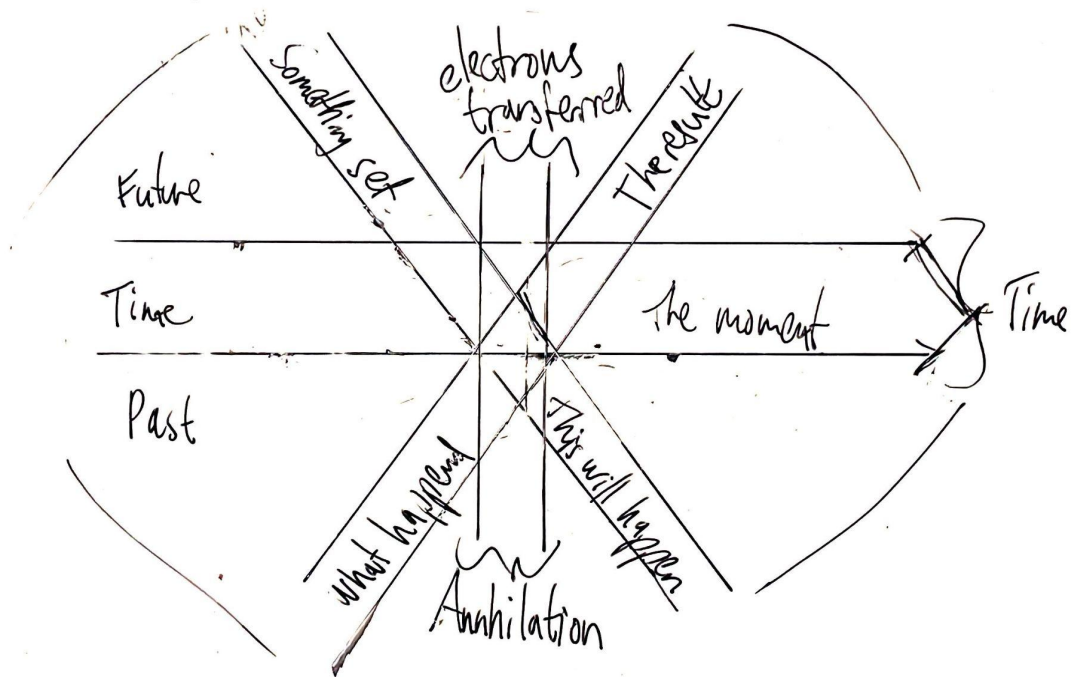 Something set.
electrons
transferred
The result
Future
Time
The moment
Time
Past
What happend
This will happen
Annhilation